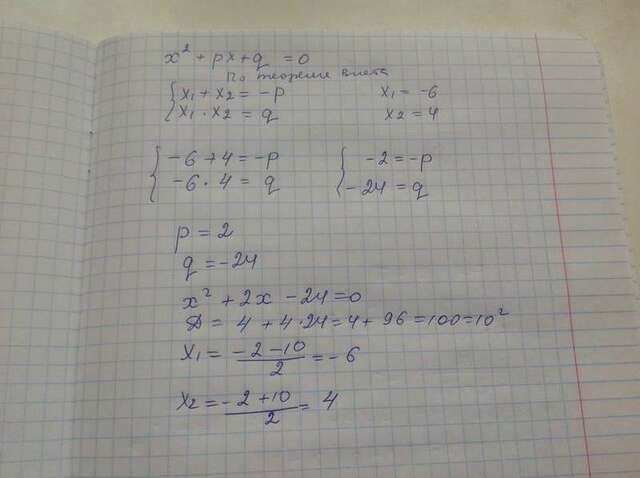 x² + px + q = 0
По теореме Виета
{ x₁ + x₂ = -p
x₁ · x₂ = q
x₁ = -6
x₂ = 4
{ -6 + 4 = -p
-6 · 4 = q
{ -2 = -p
-24 = q
p = 2
q = -24
x² + 2x - 24 = 0
D = 4 + 4·24 = 4 + 96 = 100 = 10²
x₁ = (-2 - 10)/2 = -6
x₂ = (-2 + 10)/2 = 4